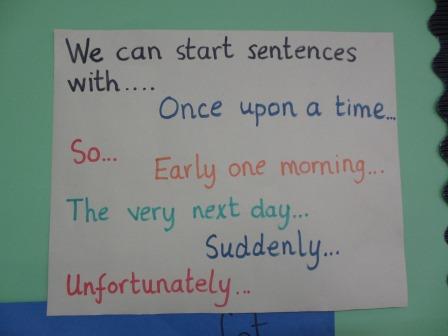 We can start sentences
with....
Once upon a time...
So...
Early one morning...
The very next day...
Suddenly...
Unfortunately...